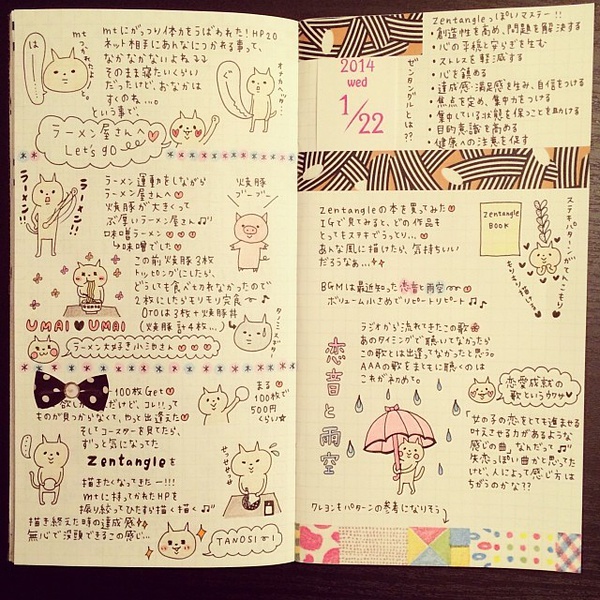 は
mt
つかれたよ。
mtにがっつり体力をうばわれた!HP20
ネット相手にあんなにつかれる事って、
なかなかないよねるる
そのまま寝たいくらい
だったけど、おなかは
すくのね…。
という事で、
オナカヘッター!
ラーメン屋さんへ
Let's go
ラーメン!!
ラーメン!!
ラーメン運動をしながら
ラーメン屋さんへ
焼豚が大きくって
ぶ厚いラーメン屋さん
味噌ラーメン
味噌でした
この前焼豚3枚
トッピングにしたら、
どうしても食べきれなかったので
2枚にしたらモリモリ完食
(Tは3枚+焼豚丼
(焼豚計4枚…)
焼豚
ブーブー
UMAI UMAI
ラーメン大好き小三わさん
100枚Get
欲しかっただけど、コレ!!って
ものが見つからなくて、やっと出逢えた
そしてコースターを見てたら、
ずっと気になってた
Zentangleを
描きたくなってきたー!!!
mtに持ってかれたHPを
振り絞ってひたすら描く描く
描き終えた時の達成感
無心で没頭できるこの感じ…
まる
100枚で
500円
くらい
TANOSIー!
Zentangleっぽいマスター!!
・創造性を高め、問題を解決する
・心の平穏と安らぎを生む
・ストレスを軽減する
・心を鎮める
・達成感・満足感を生み、自信をつける
・焦点を定め、集中力をつける
・集中している状態を保つことを助ける
・目的意識を高める
・健康への注意を促す
2014
wed
1/22
ゼンタングルとは??
Zentangleの本を買ってみた
IGで見てみると、どの作品も
とってもステキでうっとり…
あんな風に描けたら、気持ちいい
だろうなぁ…
Zentangle
BOOK
ステキパターンがてんこもり
BGMは最近知った恋音と雨空
ボリューム小さめでリピートリピート
恋音と雨空
ラジオから流れてきたこの歌
あのタイミングで聴いてなかったら
この歌とは出逢ってなかったと思う。
AAAの歌をまともに聴くのは
これが初めて。
恋愛成就の
歌というウワサ
「女の子の恋をとても進ませる
叶えさせる力があるような
感じの曲」なんだって
失恋っぽい曲かと思ってた
けど、人によって感じ方は
ちがうのかな??
クレヨンもパターンの参考になりそう